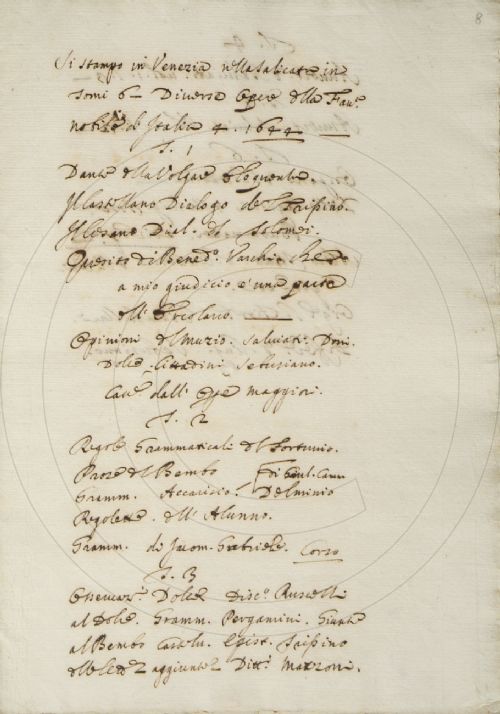 8
Si stampò in Venezia nella Salicata in
tomi 6 Diverse Opere della Fav.ª
nobile d'Italia 4. 1644
T. 1
Dante della Volgare Eloquenza.
Il Castellano Dialogo del Trissino.
Il Cesano Dial. de Tolomei.
Quesito di Bened.º Varchi che
a mio giudicio è una parte
dell' Ercolano.
Opinioni del Muzio. Salviati. Doni.
Dolce. Cittadini
Cav.e dall' Opere maggiori.
T. 2
Regole Grammaticali del Fortunio.
Prose del Bembo di Giul. Cam.
Gramm. Accarisio. Delminio
Regolette dell' Alunno.
Gramm. di Jacom. Gabriele. Corso
T. 3
Osservaz.i Dolce Disc.i Ruscelli
al Dolce. Gramm. Pergamini. Giunte
al Bembo Castelv. Epist. Trissino
delle lettere aggiunte